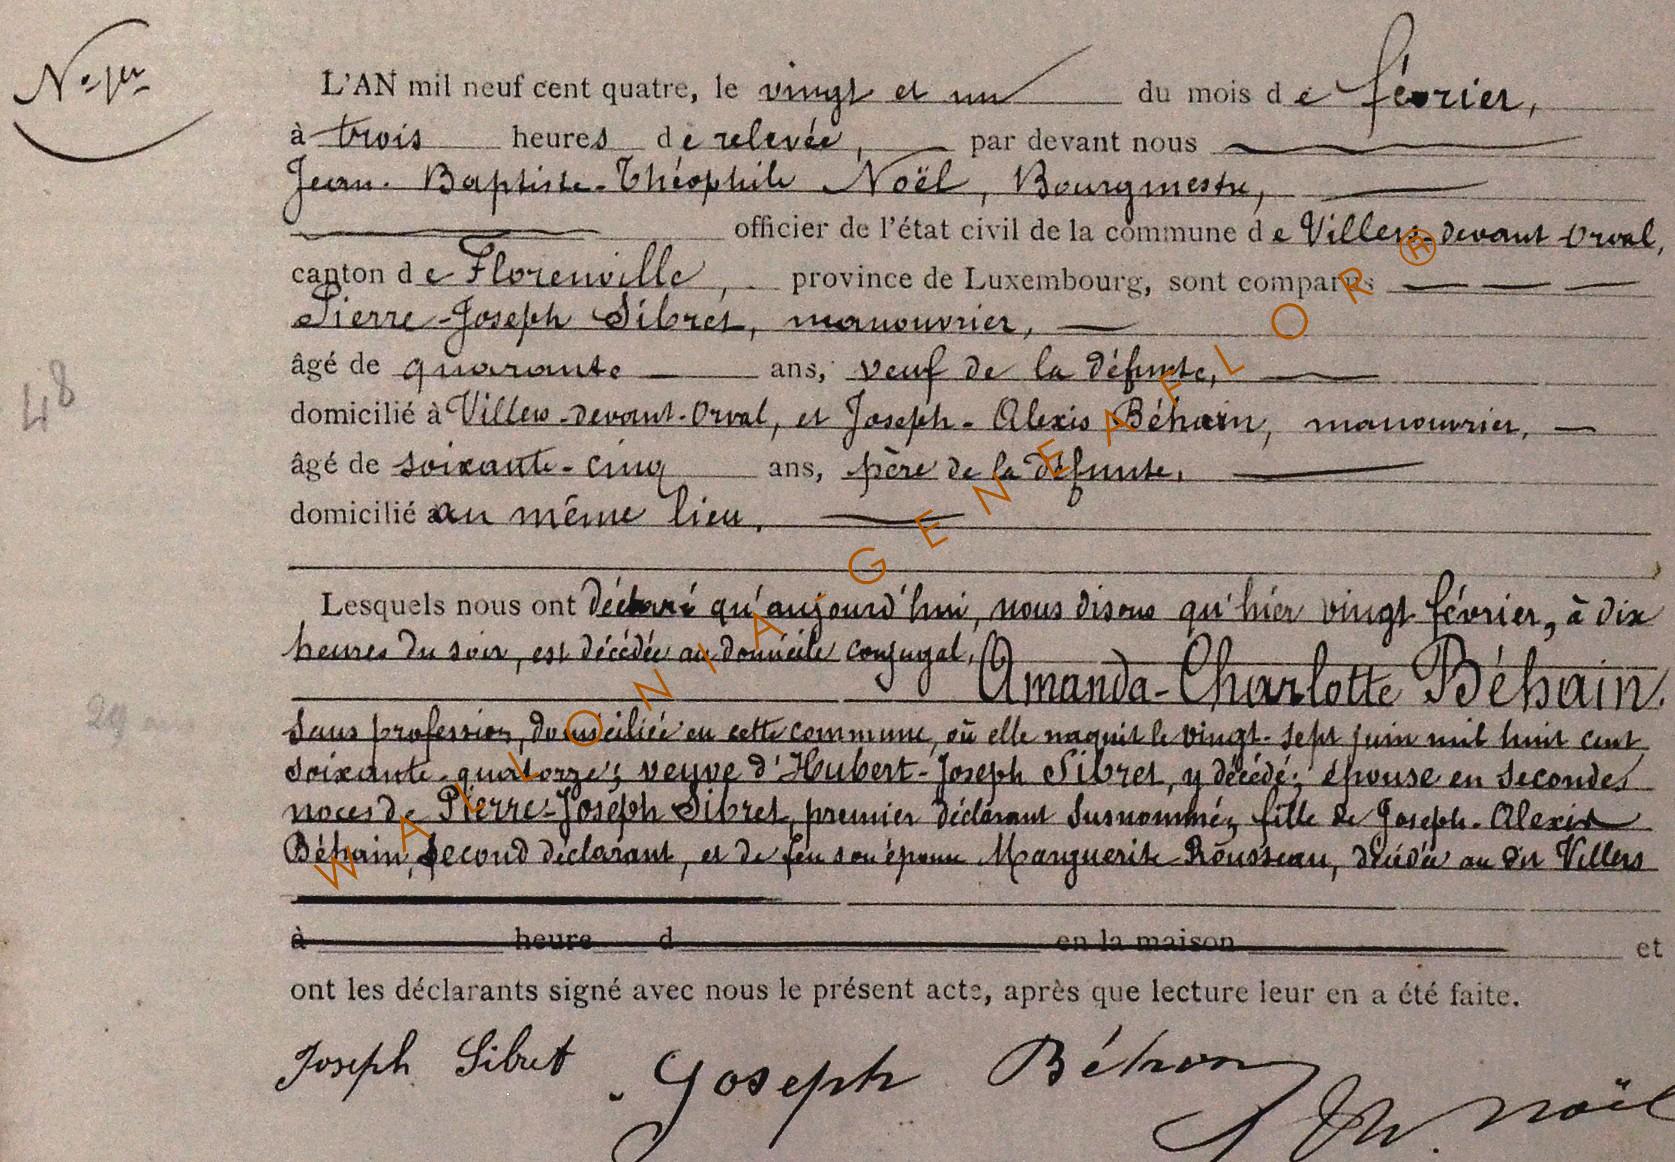 N° 1er
L'AN mil neuf cent quatre, le vingt et un du mois de février,
à trois heures de relevée, par devant nous
Jean-Baptiste-Théophile Noël, Bourgmestre,
officier de l'état civil de la commune de Villers-devant-Orval,
canton de Florenville, province de Luxembourg, sont comparus
Pierre-Joseph Sibret, manouvrier,
âgé de quarante ans, veuf de la défunte,
domicilié à Villers-devant-Orval, et Joseph-Alexis Béhain, manouvrier,
48
âgé de soixante-cinq ans, père de la défunte,
domicilié au même lieu.
Lesquels nous ont déclaré qu'aujourd'hui, nous disons qu'hier vingt février, à dix
heures du soir, est décédée au domicile conjugal,
Amanda-Charlotte Béhain.
29 ans
sans profession, domiciliée en cette commune, où elle naquit le vingt-sept juin mil huit cent
soixante-quatorze; veuve d'Hubert-Joseph Sibret, y décédé; épouse en secondes
noces de Pierre-Joseph Sibret, premier déclarant susnommé, fille de Joseph-Alexis
Béhain, second déclarant, et de feu son épouse Marguerite Rousseau, décédée au dit Villers
à heure d en la maison et
ont les déclarants signé avec nous le présent acte, après que lecture leur en a été faite.
Joseph Sibret Joseph Béhain
JTh. Noël
WALLONIA GENEAFLOR®